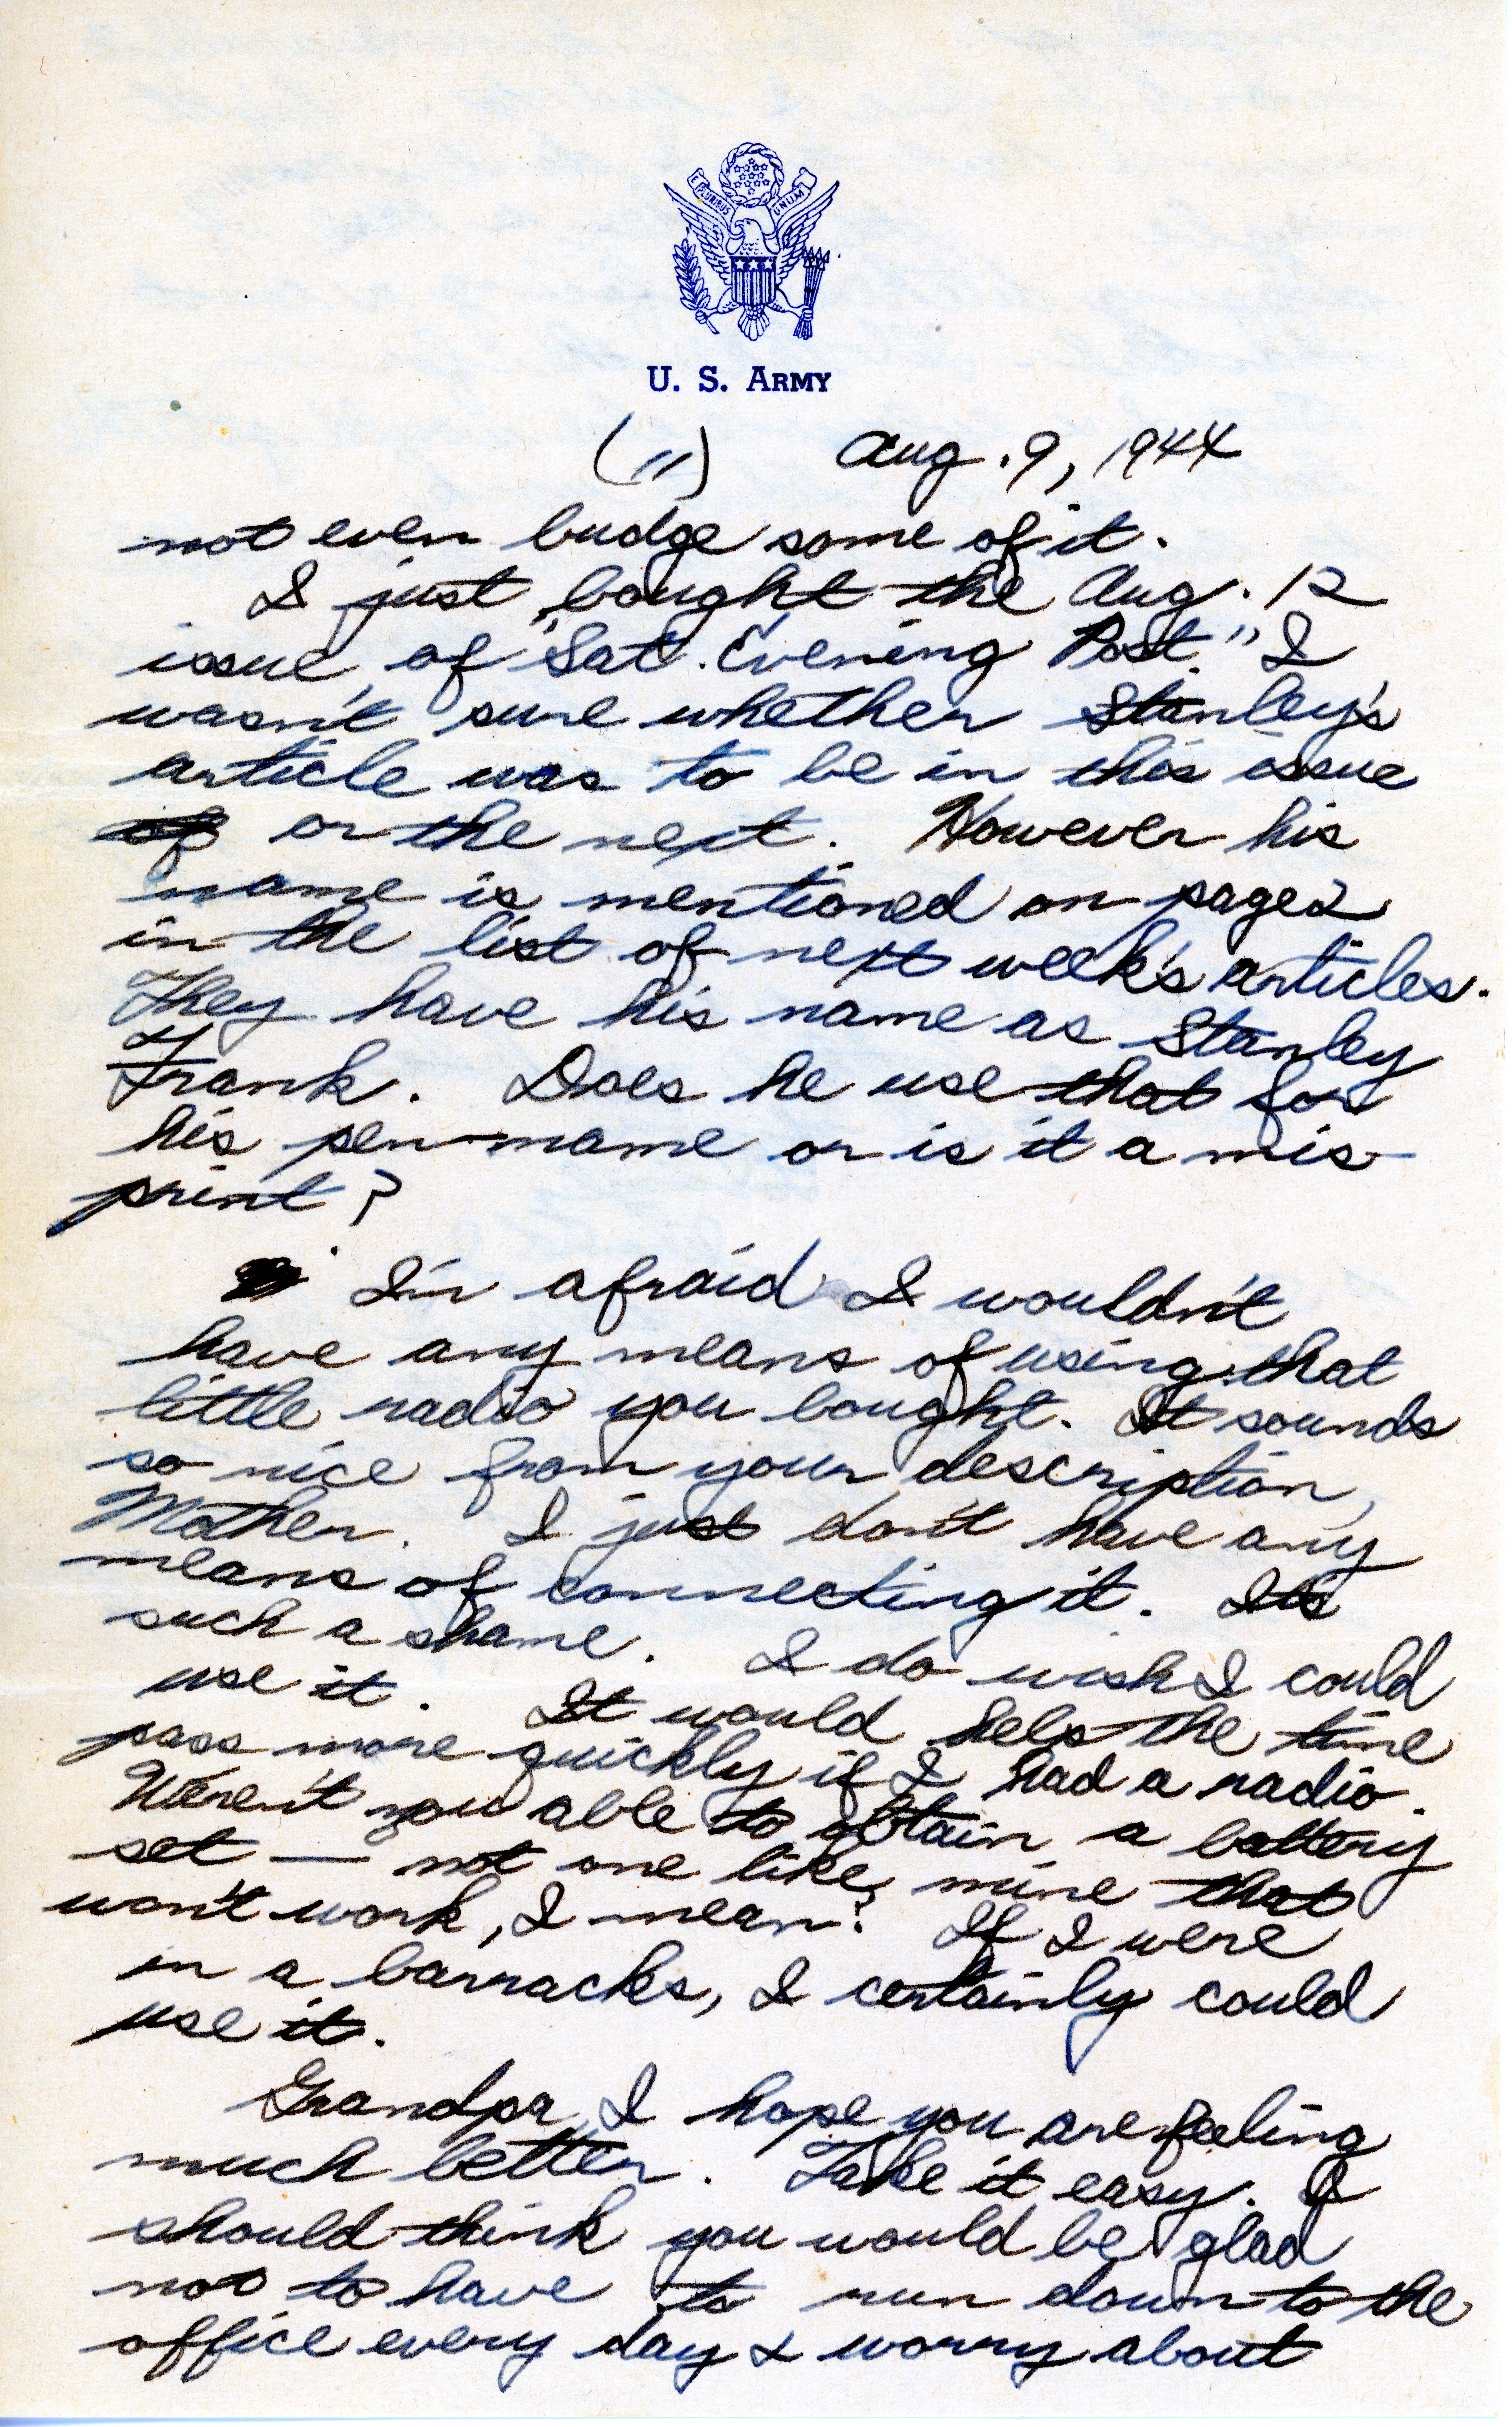 E PLURIBUS UNUM
U. S. ARMY
(11) Aug. 9, 1944
not even budge some of it.
I just bought the Aug. 12
issue of "Sat. Evening Post." I
wasn't sure whether Stanley's
article was to be in this issue
of or the next. However his
name is mentioned on page 2
in the list of next week's articles.
They have his name as Stanley
Frank. Does he use that for
his pen-name or is it a mis-
print?
I'm afraid I wouldn't
have any means of using that
little radio you bought. It sounds
so nice from your description,
Mother. I just don't have any
means of connecting it. Its
such a shame. I do wish I could
use it. It would help the time
pass more quickly if I had a radio.
Weren't you able to obtain a battery
set — not one like mine that
won't work, I mean? If I were
in a barracks, I certainly could
use it.
Grandpa, I hope you are feeling
much better. Take it easy. I
should think you would be glad
not to have to run down to the
office every day & worry about